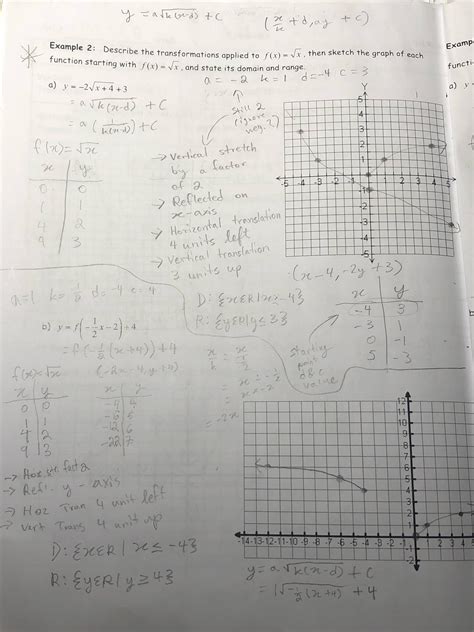 y = a√k(x-d) + c   (x/k + d, ay + c)
Example 2: Describe the transformations applied to f(x) = √x, then sketch the graph of each
function starting with f(x) = √x, and state its domain and range.
a = -2 k = 1 d = -4 c = 3
a) y = -2√x + 4 + 3
= a√k(x-d) + c
= a ( 1/k(x-d) ) + c
Still 2
(ignore
neg.)
f(x) = √x
x y
0 0
1 1
4 2
9 3
→ Vertical stretch
by a factor
of 2
→ Reflected on
x-axis
→ Horizontal translation
4 units left
→ Vertical translation
3 units up
Y
5
4
3
-5 -4 -3 -2 -1 0 1 2 3 4 5
-1
-2
-3
-4
-5
(x-4, -2y+3)
x y
-4 3
-3 1
0 -1
5 -3
D: {x∈R | x ≥ -4}
R: {y∈R | y ≤ 3}
Starting
point
d & c
value
a = 1 k = -1/2 d = -4 c = 4
b) y = f(-1/2 x - 2) + 4
= f(-1/2 (x+4)) + 4
f(x) = √x
x y
0 0
1 1
4 2
9 3
x y
-4 4
-6 5
-12 6
-22 7
= -2x
→ Refl. y-axis
→ Hoz Tran 4 unit left
→ Vert Trans 4 unit up
D: {x∈R | x ≤ -4}
R: {y∈R | y ≥ 4}
12
11
10
9
8
7
6
5
4
3
2
1
-14 -13 -12 -11 -10 -9 -8 -7 -6 -5 -4 -3 -2 -1 0 1 2 3 4
-1
-2
y = a√k(x-d) + c
= 1√-1/2 (x+4) + 4
Examp
functi
a) y